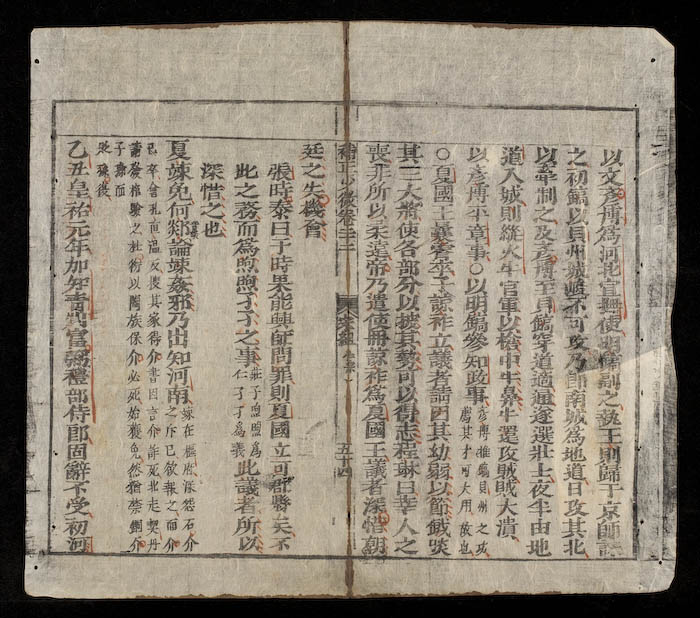 以文彥博爲河北宣撫使明鎬副之執王則歸于京師誅
之初鎬以貝州城峻不可攻乃卽南城爲地道日攻其北
以牽制之及彥博至貝鎬穿道適通遂選壯士夜半由地
道入城則縱火牛官軍以槍中牛鼻牛還攻賊賊大潰
以彥博平章事○以明鎬參知政事彥博推鎬貝州之功
薦其才可大用故也
○夏國王曩霄卒子諒祚立議者請因其幼弱以節鉞啖
其三大將使各部分以披其勢可以得志程琳曰幸人之
喪非所以柔遠帝乃遣使冊諒祚爲夏國王議者深惜朝
五十四
廷之失機會
張時泰曰于時果能興師問罪則夏國立可郡縣矣不
此之務而爲煦煦孑孑之事
仁孑孑爲義
此議者所以
深惜之也
夏竦免何郯論竦姦邪乃出知河南竦在樞府深怨石介
之斥己欲報之而介
已卒會孔直溫反搜其家得介書因言介詐死北走契丹
請發棺驗之杜衍以闔族保介必死始獲免然猶禁錮介
乙丑皇祐元年加知靑州富弼禮部侍郎固辭不受初河